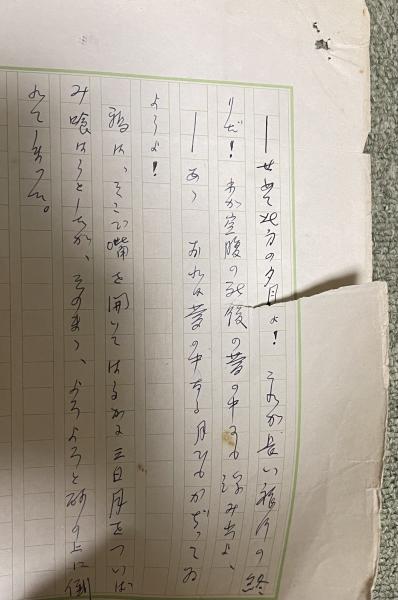 ―せめて北方の夕月よ！ これが長い旅行の終
りだ！ わが空腹の死後の夢の中にも滲みよ、
―あゝ おれは夢の中なる月でもかぢってゐ
ようよ！
鴉は、そこで嘴を開いてはるかな三日月をついば
み喰はうとしたが、そのまゝ、よろよろと砂の上に倒
れてしまつた。